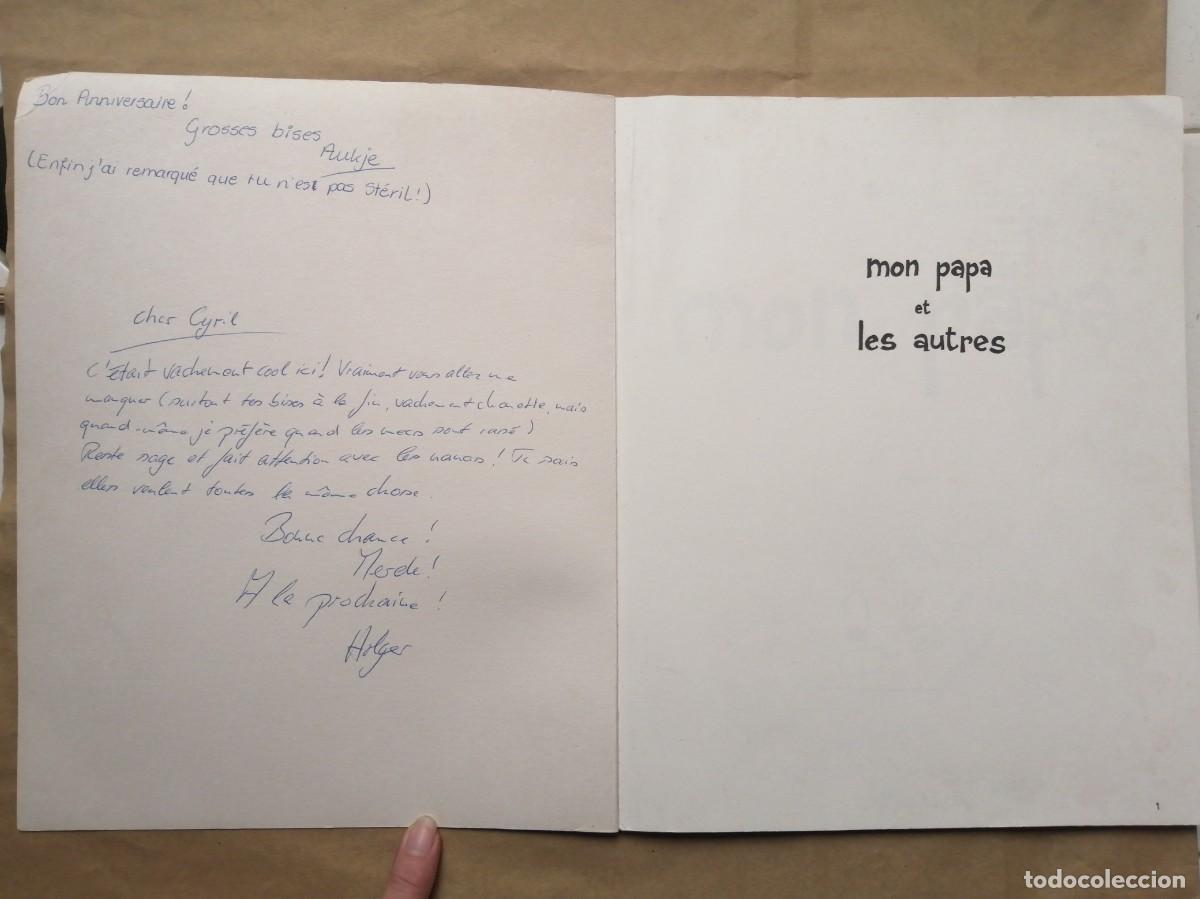 Bon Anniversaire!
Grosses bises
Aukje
(Enfin j'ai remarqué que tu n'est pas stéril!)
cher Cyril
C'était vachement cool ici! Vraiment vous allez me
manquer (surtout tes bises à la fin, vachement chouette, mais
quand-même je préfère quand les mecs sont rasé)
Reste sage et fait attention avec les nanas! Tu sais
elles veulent toutes la même chose.
Bonne chance!
Merde!
A la prochaine!
Holger
mon papa
et
les autres
1
todocoleccion